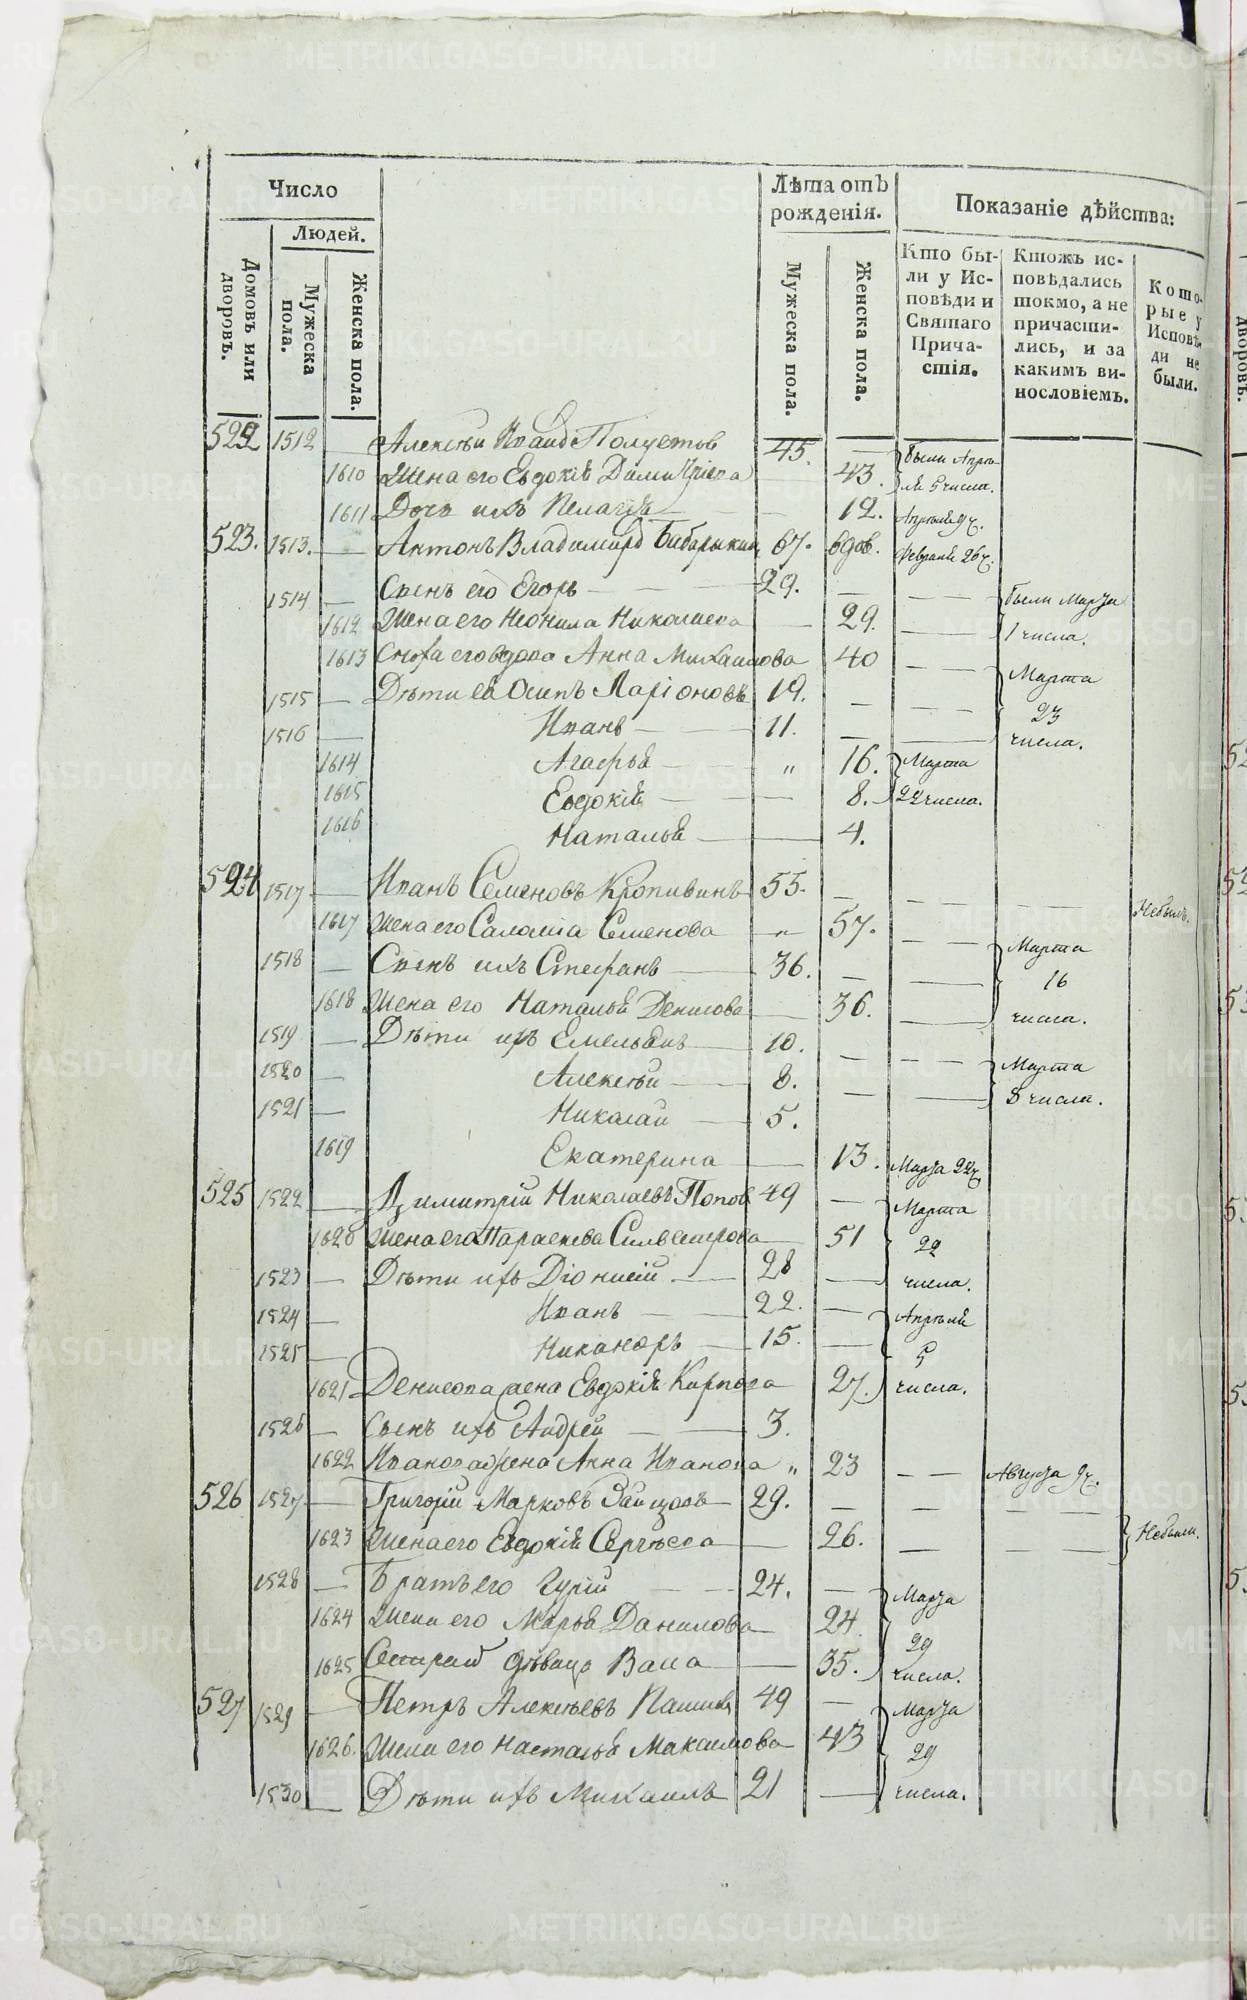 Число
Лѣта отъ рожденія.
Показаніе дѣйства:
Людей.
Домовъ или дворовъ.
Мужеска пола.
Женска пола.
Мужеска пола.
Женска пола.
Кто были у Исповѣди и Святаго Причастія.
Ктожъ исповѣдались токмо, а не причастились, и за какимъ винословіемъ.
Которые у Исповѣди не были.
522 1512 — Алексѣи Иванов 45. — были Апрѣ-
1610 Жена его Евдокія 43. ля 5 числа.
1611 Дочь ихъ Пелагія — — 12. Апрѣля 9 ч.
523. 1513. — Антонъ Владимировъ Бибарыкин 67. вдов. Февраля 26 ч.
1514 — Сынъ его Егоръ — — 29. — — — были Марта
1612 Жена его Неонила Николаева — 29. — — 1 числа.
1613 Сноха его вдова Анна Михаилова 40 — — Марта
1515 — Дѣти ея Осипъ Ларіоновъ 19. — — — 23
1516 — Иванъ — — 11. — — числа.
1614 Агафья — — „ 16. Марта
1615 Евдокія — — 8. 22 числа.
1616 Наталья — — 4.
524 1517 — Иванъ Семеновъ Кропивинъ 55. — — — — — Небылъ.
1617 Жена его Саломія Семенова — „ 57. — — Марта
1518 — Сынъ ихъ Стефанъ — 36. — — 16
1618 Жена его Наталья Денисова — 36. — числа.
1519 — Дѣти ихъ Емельянъ — 10. — — — Марта
1520 — Алексѣй — 8. — — 8 числа.
1521 — Николай — 5.
1619 Екатерина — 13. Марта 22 ч
525 1522 — Димитрій Николаевъ Попов 49 — Марта
1620 Жена его Параскева Силвестрова — 51 22
1523 — Дѣти ихъ Діонисій — 28 — числа.
1524 — Иванъ — 22. — Апрѣля
1525 — Никаноръ — 15. — 5
1621 Денисова жена Евдокія Карпова 27. числа.
1526 — Сынъ ихъ Андрей — — 3.
1622 Иванова жена Анна Иванова „ 23 — — Августа 9 ч.
526 1527 — Григорій Марковъ Зайцовъ — 29. — — —
1623 Жена его Евдокія Сергѣева — 26. — — — Небыли.
1528 — Братъ его Гурій — — 24. — Марта
1624 Жена его Марья Данилова — 24. 29
1625 Сестра дѣвица Васа — — 35. числа.
527 1529 — Петръ Алексѣевъ 49 — Марта
1626. Жена его Настасья Максимова — 43 29
1530 — Дѣти ихъ Михаилъ 21 — числа.
дворовъ.
METRIKI.GASO-URAL.RU